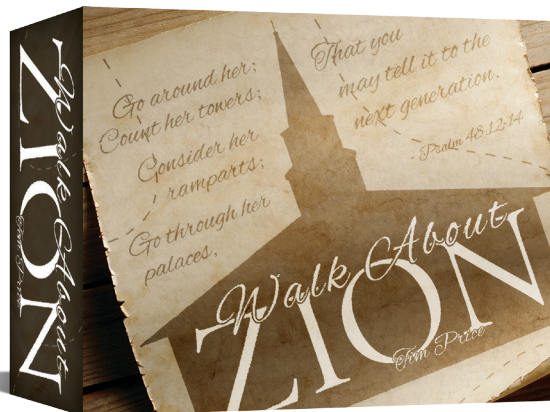 Walk About
ZION
Tom Price
Go around her;
Count her towers;
Consider her
ramparts;
Go through her
palaces,
That you
may tell it to the
next generation.
- Psalm 48:12-14
Walk About
ZION
Tom Price